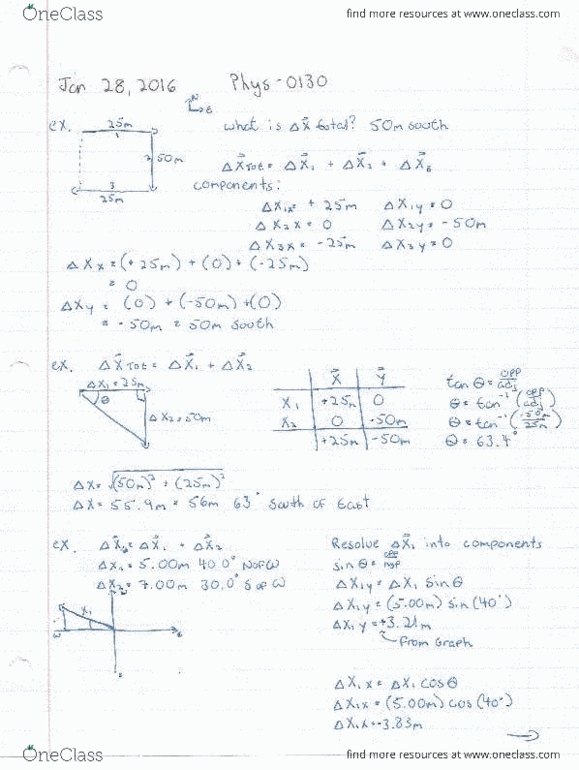 OneClass find more resources at www.oneclass.com
Jan 28, 2016 Phys-0130
N
E
ex. 25m what is Δx⃗ total? 50m south
1
2 50m
3
25m
Δx⃗Tot = Δx⃗1 + Δx⃗2 + Δx⃗3
components:
Δx1x = +25m Δx1y = 0
Δx2x = 0 Δx2y = -50m
Δx3x = -25m Δx3y = 0
Δxx = (+25m) + (0) + (-25m)
= 0
Δxy = (0) + (-50m) + (0)
= -50m = 50m south
ex. Δx⃗Tot = Δx⃗1 + Δx⃗2
Δx1 = 25m
θ
Δx2 = 50m
x⃗ y⃗
x1 +25m 0
x2 0 -50m
+25m -50m
tan θ = opp/adj
θ = tan⁻¹(opp/adj)
θ = tan⁻¹(-50m/25m)
θ = 63.4°
Δx = √(50m)² + (25m)²
Δx = 55.9m = 56m 63° South of East
ex. Δx⃗ = Δx⃗1 + Δx⃗2
Δx1 = 5.00m 40.0° N of W
Δx2 = 7.00m 30.0° S of W
x1
W
Resolve Δx⃗1 into components
sin θ = opp/hyp
Δx1y = Δx1 sin θ
Δx1y = (5.00m) sin (40°)
Δx1y = +3.21m
from Graph
Δx1x = Δx1 cos θ
Δx1x = (5.00m) cos (40°)
Δx1x = -3.83m
OneClass find more resources at www.oneclass.com